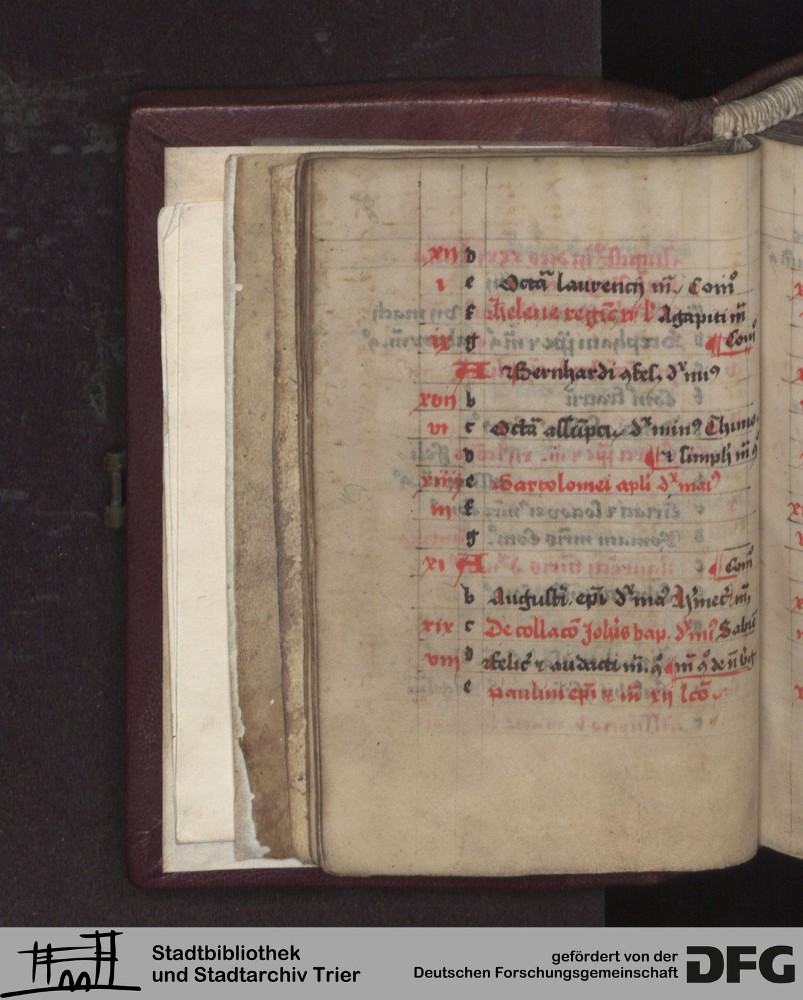 xii d
i e Octã laurencij m̃. Com̃
f Helene regine Agapiti m̃
ix g Com̃
A Bernhardi ꝯfes. dx̃ mi⁹
xvii b
vi c Octã assũpci. dx̃ min⁹ Thimo
d ⁊ simph m̃
xiiij e Bartolomei apli dx̃ mai⁹
iii f
g
xi A Com̃
b Augusti. epi dx̃ ma⁹ h'met m̃
xix c De collacõ Joh'is bap. dx̃ mi⁹ Sabine
viii d felic⁹ ⁊ audacti m̃.
e paulini epi ⁊ m̃ xij lcõ
Stadtbibliothek
und Stadtarchiv Trier
gefördert von der
Deutschen Forschungsgemeinschaft
DFG